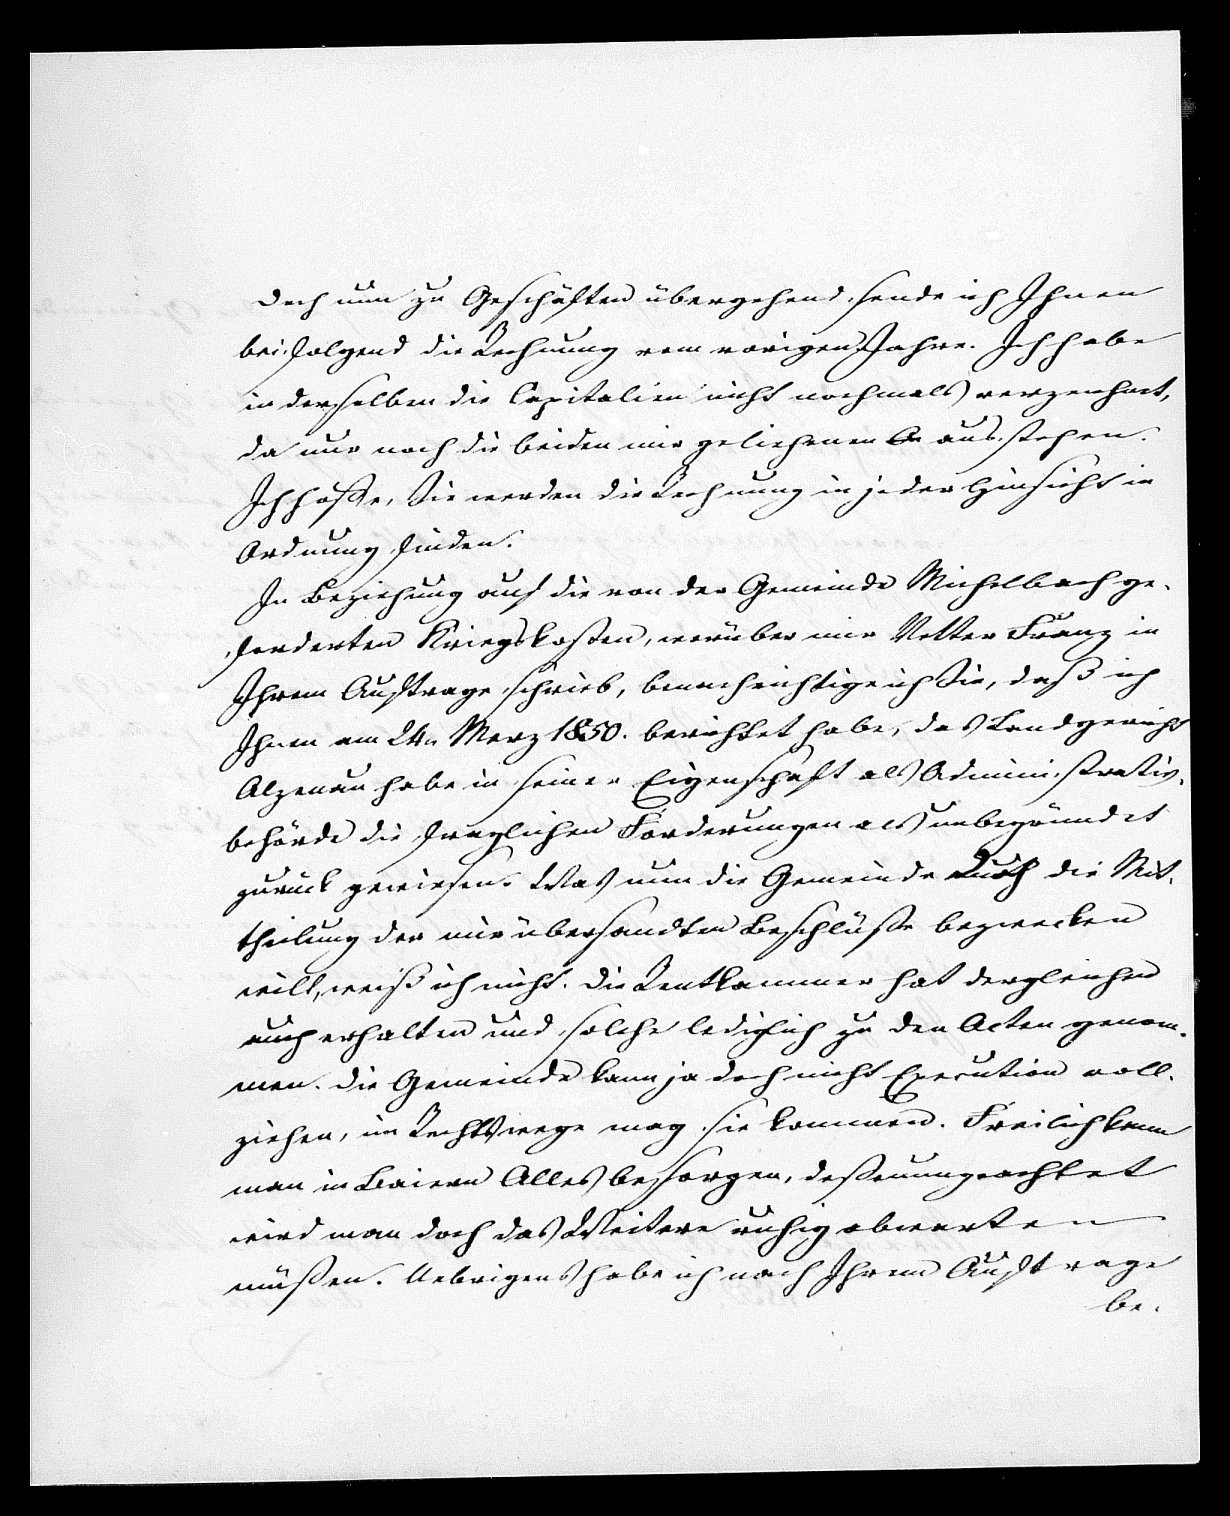 Doch nun zu Geschäften übergehend, sende ich Ihnen
beifolgend die Rechnung vom vorigen Jahre. Ich habe
in derselben die Capitalien nicht nochmals verzeichnet,
da nur noch die beiden mir geliehenen ausstehen.
Ich hoffe, Sie werden die Rechnung in jeder Hinsicht in
Ordnung finden.
In Beziehung auf die von der Gemeinde Michelbach ge-
forderten Kriegskosten, worüber mir Vetter Franz in
Ihrem Auftrage schrieb, benachrichtige ich Sie, daß ich
Ihnen am 24n Merz 1850. berichtet habe, das Landgericht
Alzenau habe in seiner Eigenschaft als Administrativ-
behörde die fraglichen Forderungen als unbegründet
zurück gewiesen. Was nun die Gemeinde durch die Mit-
theilung der mir übersandten Beschlüße bezwecken
will, weiß ich nicht. Die Rentkammer hat dergleichen
auch erhalten und solche lediglich zu den Acten genom-
men. Die Gemeinde kann ja doch nicht Execution voll-
ziehen, im Rechtswege mag sie kommen. Freilich kann
man in Baiern Alles besorgen, deßenungeachtet
wird man doch das Weitere ruhig abwarten
müßen. Uebrigens habe ich nach Ihrem Auftrage
be-